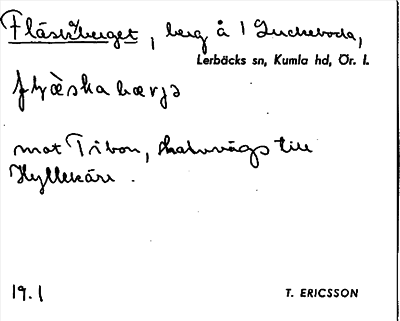 Fläskberget, berg å 1 Luckeboda,
Lerbäcks sn, Kumla hd, Ör. l.
mot Tibon, halvvägs till
Hyllekärr.
19.1
T. ERICSSON